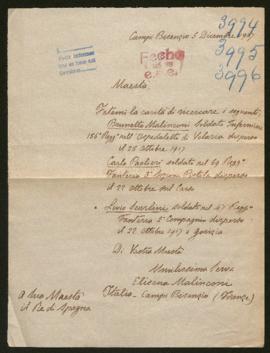 3994
3995
3996
Campi Bisenzio 5 Dicembre 1917
Fecho
Maestà
Fatemi la carità di ricercare i seguenti
Brunetto Malinconi soldato Infermiere
156° Regg° nell'Ospedaletto di Velario disperso
il 25 ottobre 1917
Carlo Paolieri soldato nel 69 Regg°
Fanteria 3ª Sezione Pistola disperso
il 22 ottobre sul Carso
Livio Scarlini soldato nel 47 Regg°
Fanteria 5ª Compagnia disperso
il 22 ottobre 1917 a Gorizia
Di Vostra Maestà
Umilissima Serva
Eliczna Malinconi
A Sua Maestà
Italia - Campi Bisenzio (Firenze)
il Re di Spagna